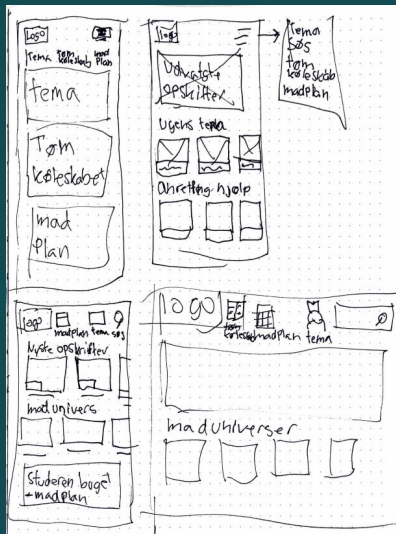 Logo
Tema tøm køleskab mad plan
tema
Tøm
køleskabet
mad
Plan
logo
Udvalgte
opskrifter
Ugens tema
Anretning hjælp
Tema
søs
tøm
køleskab
madplan
logo
madplan tema søg
Nyste opskrifter
mad univers
studeren buget
+ madplan
logo
tøm
køleskab madplan tema
mad universer